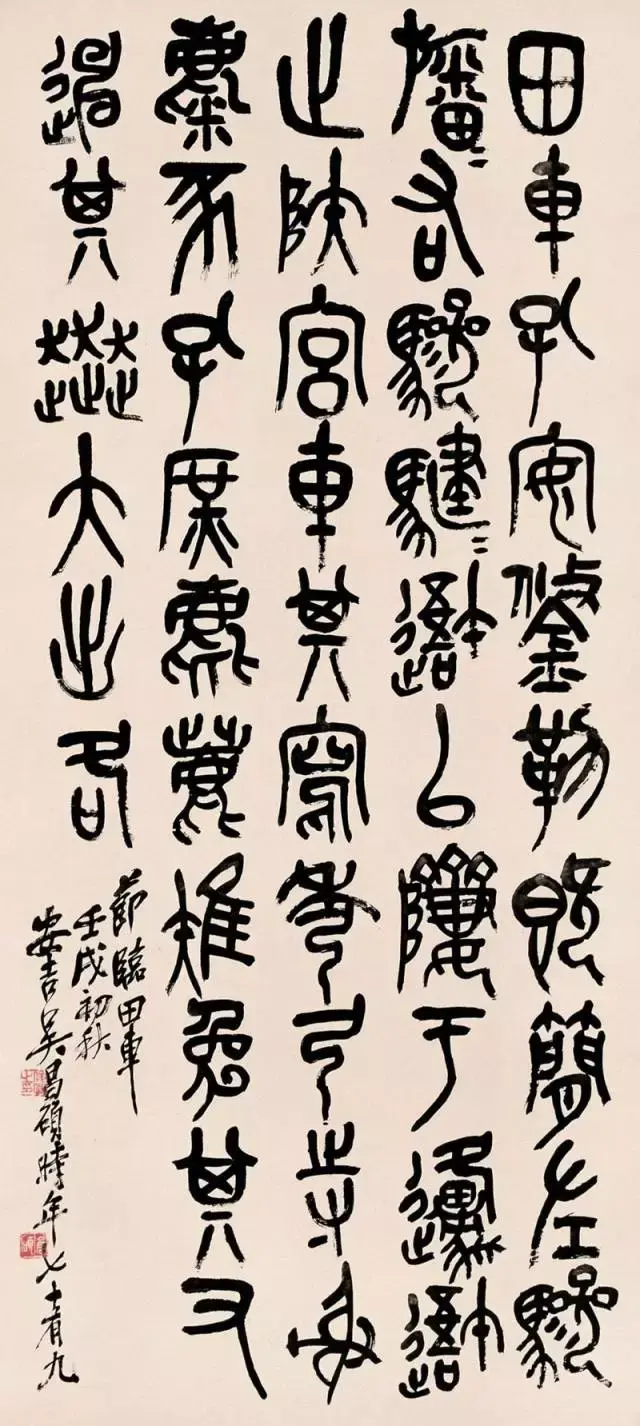 田車孔安鋚勒既簡左驂
旛=右驂騝=吾以隮于邍吾
止陝宮車其寫秀弓寺射
麋豕孔庶麀鹿雉兔其又
其奔大出各
節臨田車
壬戌初秋
安吉吳昌碩時年七十有九